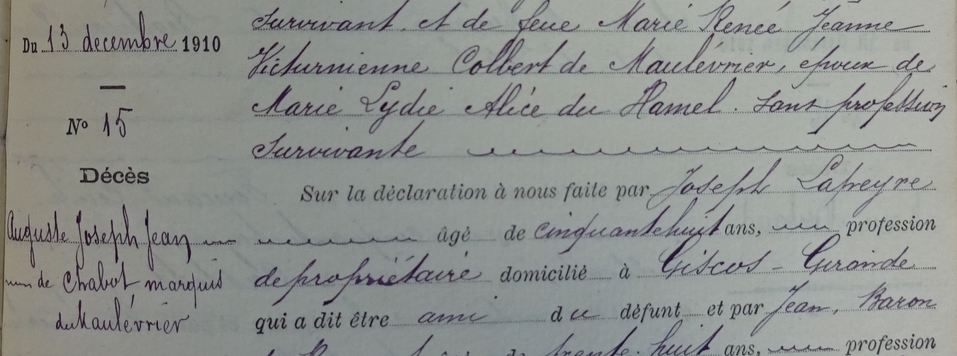 Du 13 decembre 1910
N° 15
Décès
Auguste Joseph Jean
de Chabot marquis
du Maulévrier
Survivant, et de feue Marie Renée Jeanne
Victurnienne Colbert de Maulévrier, époux de
Marie Lydie Alice du Hamel. sans profession
Survivante
Sur la déclaration à nous faite par Joseph Lapeyre
âgé de cinquante huit ans, profession
de propriétaire domicilié à Giscos - Gironde
qui a dit être ami du défunt et par Jean, Baron
de trente-huit ans, profession